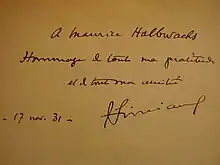 A Maurice Halbwachs
Hommage de toute ma gratitude
et de toute mon amitié
- 17 nov. 31 -